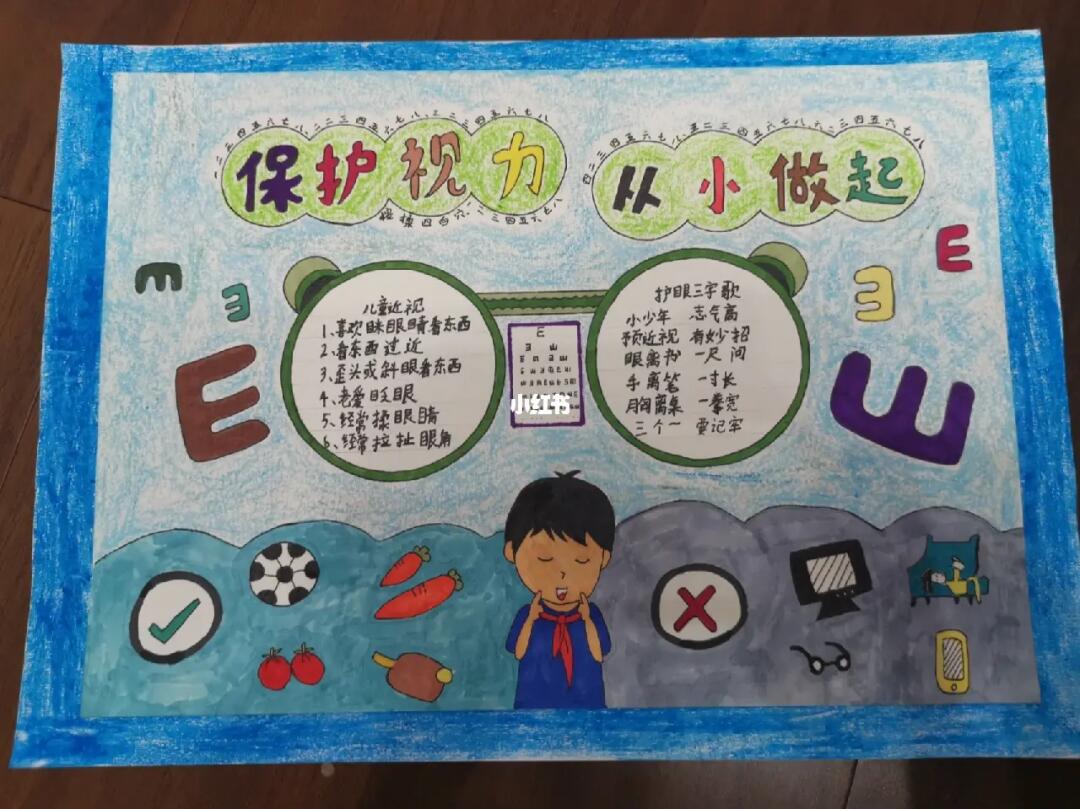 保护视力
从小做起
儿童近视
1、喜欢眯眼睛看东西
2、看东西过近
3、歪头或斜眼看东西
4、老爱眨眼
5、经常揉眼睛
6、经常拉扯眼角
小红书
护眼三字歌
小少年 志气高
预近视 有妙招
眼离书 一尺间
手离笔 一寸长
胸离桌 一拳宽
三个一 要记牢